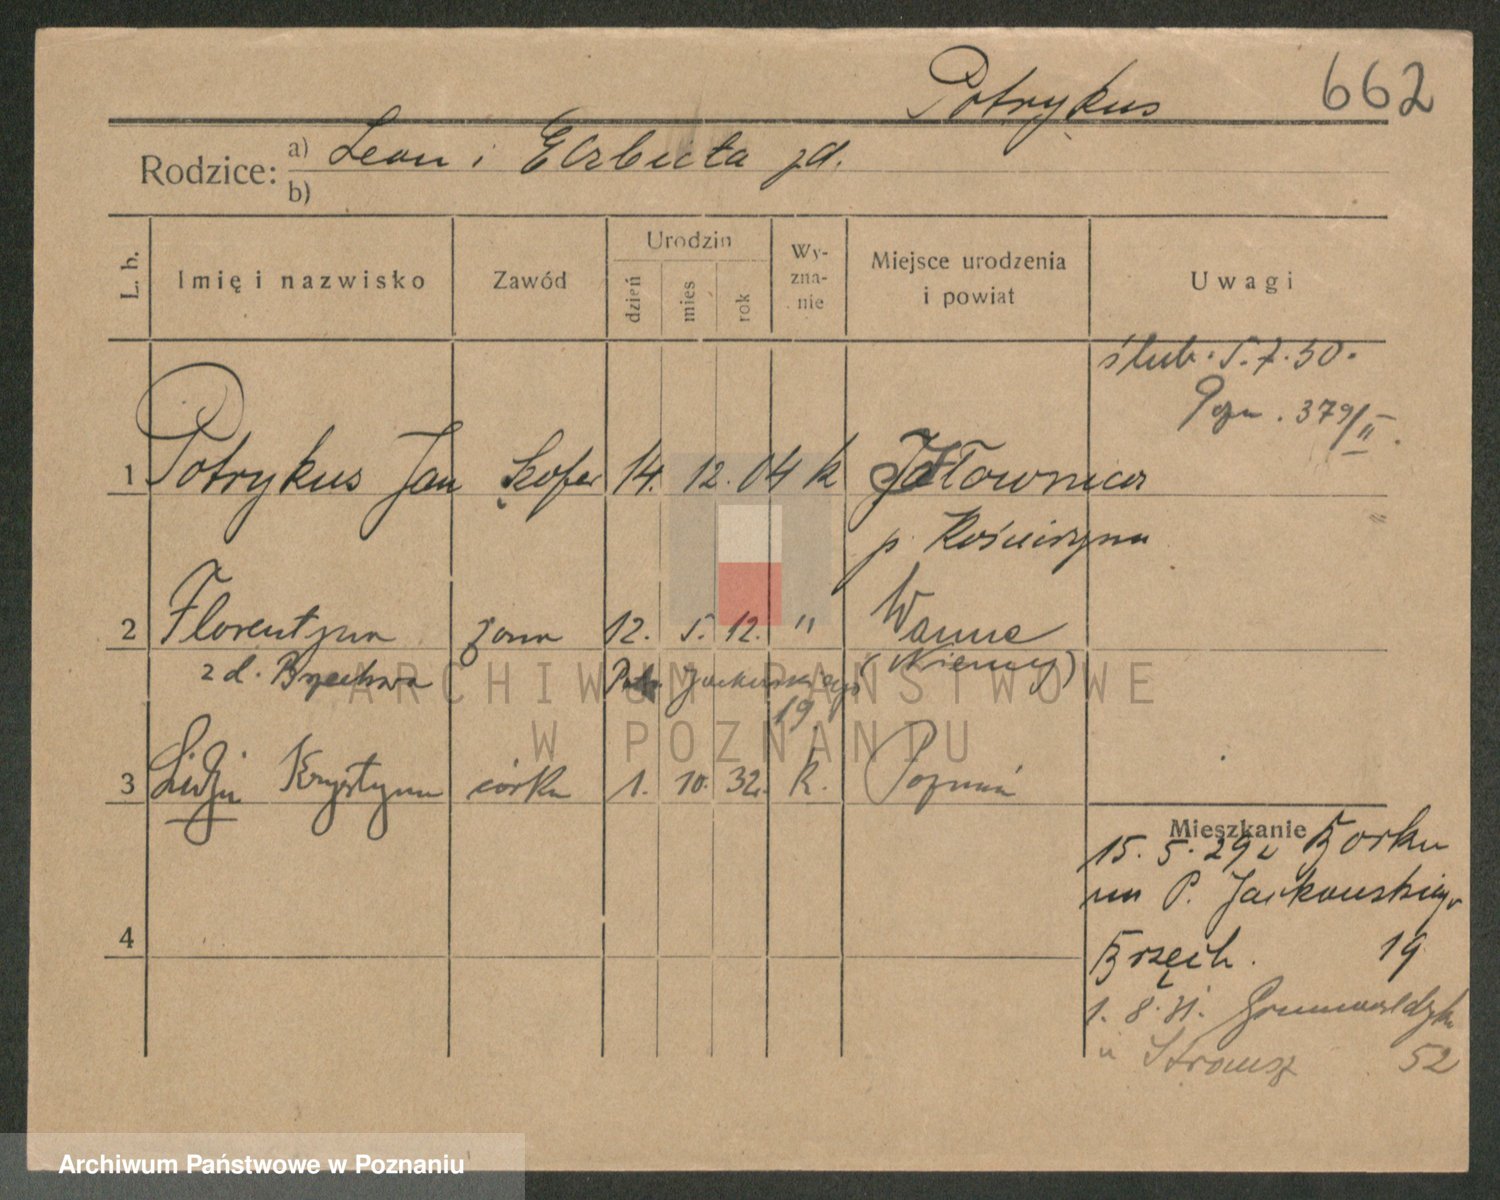 Potrykus 662
Rodzice: a) Leon i Elżbieta zd.
b)
L. b. Imię i nazwisko Zawód Urodzin dzień mies rok Wy-zna-nie Miejsce urodzenia i powiat Uwagi
ślub. 5.7.30.
Pozn. 379/II.
1 Potrykus Jan szofer 14. 12. 04 k Jałownica
p. Kościerzyna
2 Florentyna żona 12. 5. 12. " Wanne
z d. Brzechwa Jackowskiego (Niemcy)
19
3 Lidja Krystyna córka 1. 10. 32. k. Poznań
Mieszkanie
15. 5. 29 z Borku
na P. Jackowskiego
Brzęch. 19
4
1. 8. 31. Grunwaldzka
u Strausz 52
ARCHIWUM PAŃSTWOWE
W POZNANIU
Archiwum Państwowe w Poznaniu